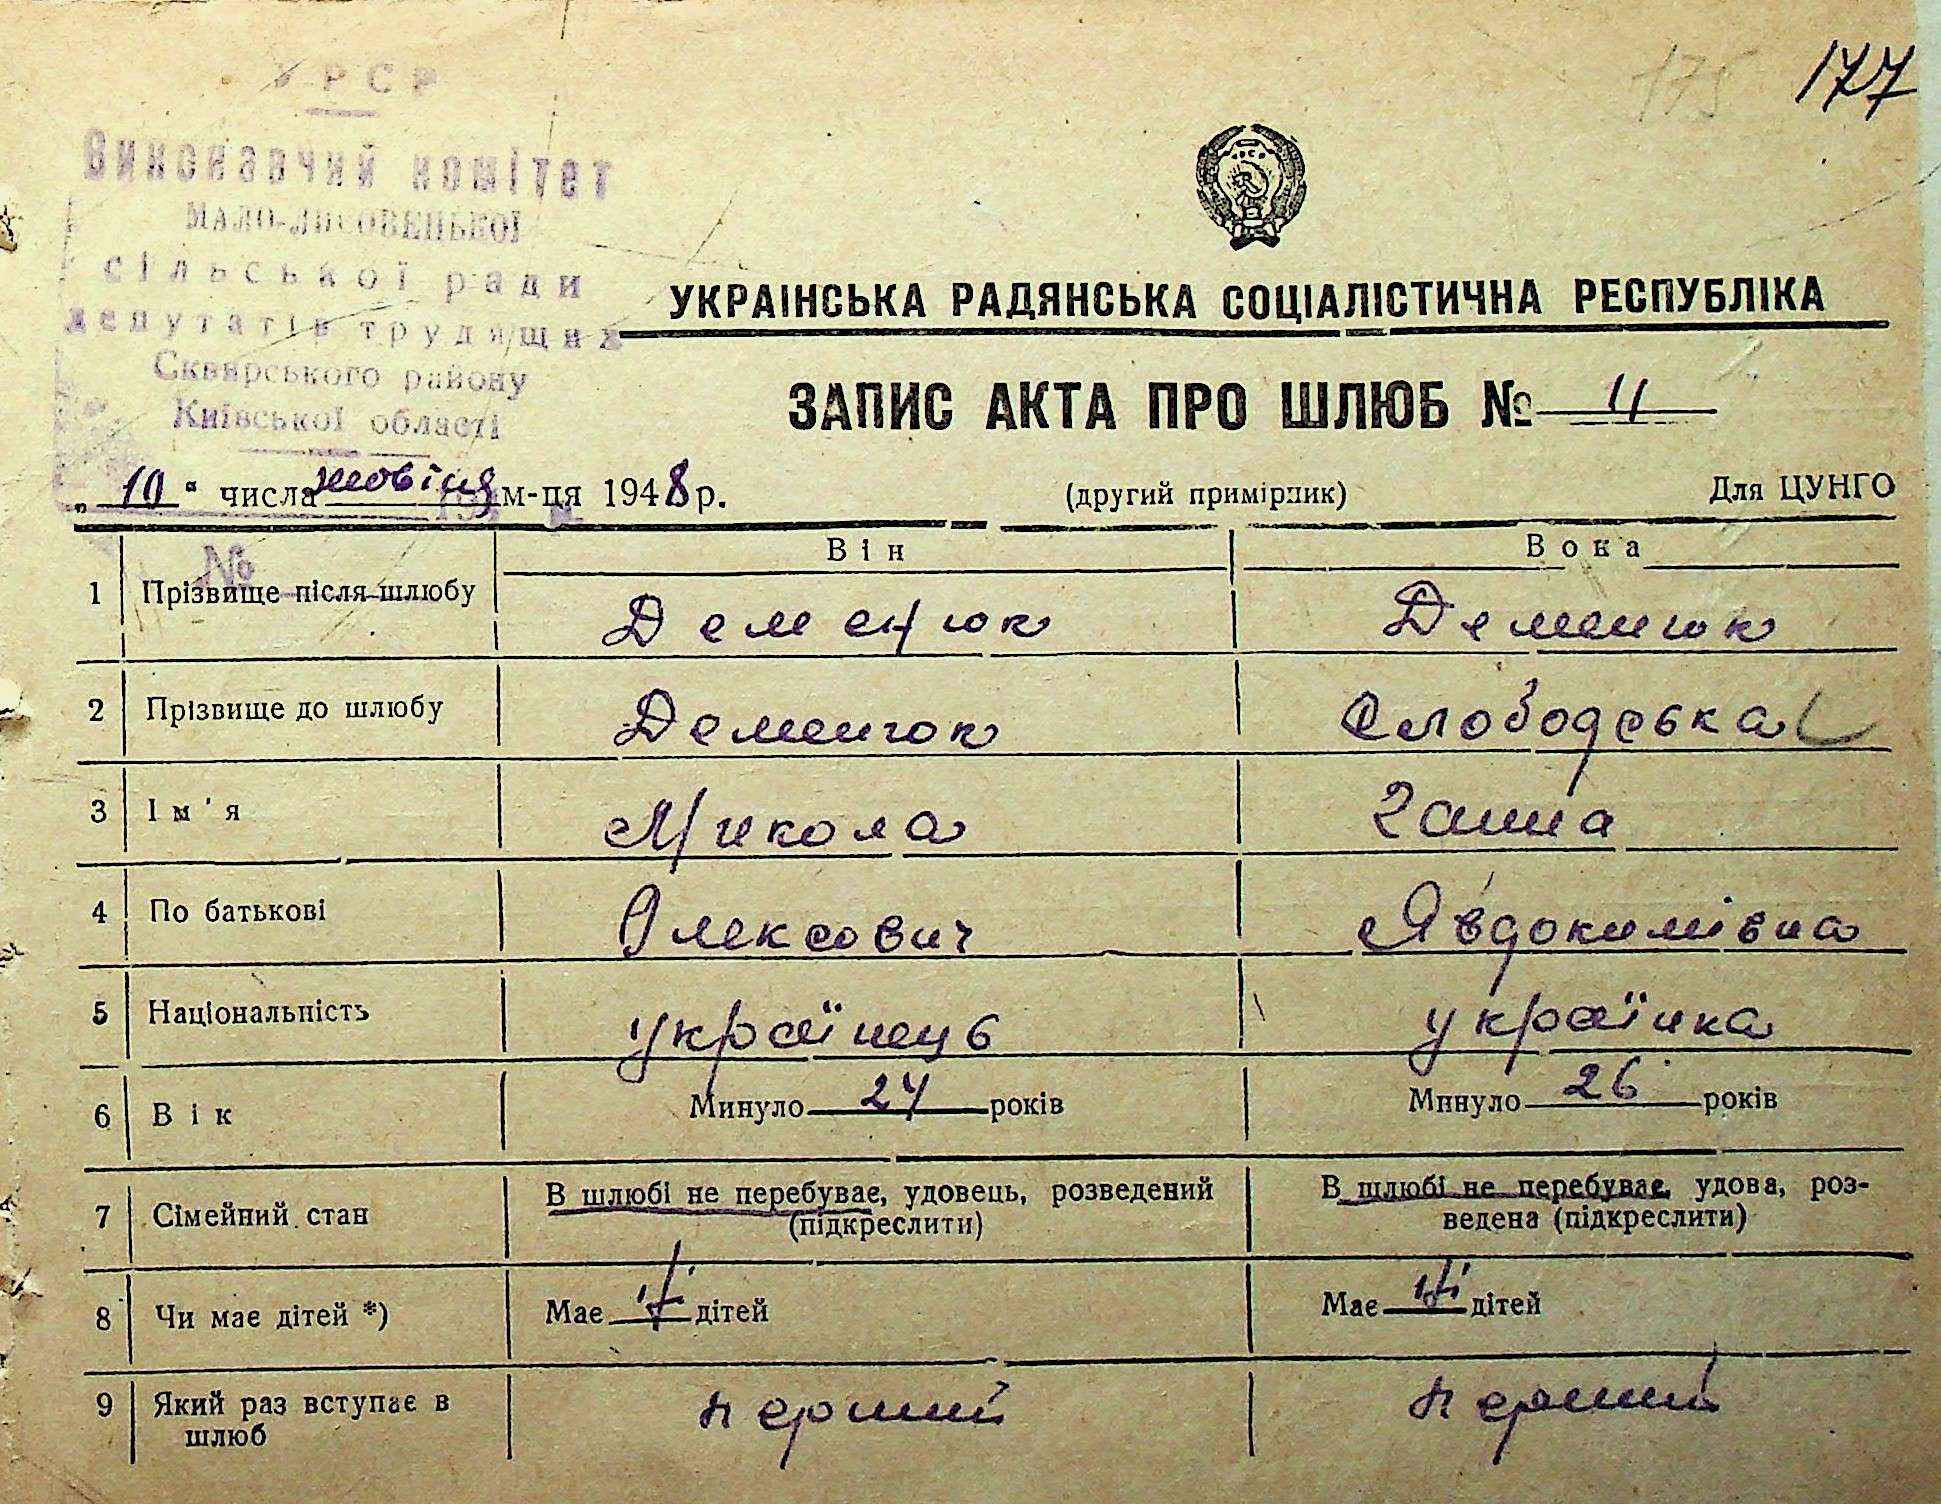 175 177
УРСР
Виконавчий комітет
МАЛО-ЛИСОВЕЦЬКОЇ
сільської ради
депутатів трудящих
Сквирського району
Київської області
№
УКРАЇНСЬКА РАДЯНСЬКА СОЦІАЛІСТИЧНА РЕСПУБЛІКА
ЗАПИС АКТА ПРО ШЛЮБ № 11
„ 10 “ числа жовтня м-ця 1948 р. (другий примірник) Для ЦУНГО
Він Вона
1 Прізвище після шлюбу Деменюк Деменюк
2 Прізвище до шлюбу Деменюк Слободська
3 Ім'я Микола Ганна
4 По батькові Олексович Явдокимівна
5 Національність українець українка
6 Вік Минуло 24 років Минуло 26 років
7 Сімейний стан В шлюбі не перебуває, удовець, розведений (підкреслити) В шлюбі не перебуває, удова, роз-
ведена (підкреслити)
8 Чи має дітей *) Має дітей Має дітей
9 Який раз вступає в шлюб перший перший